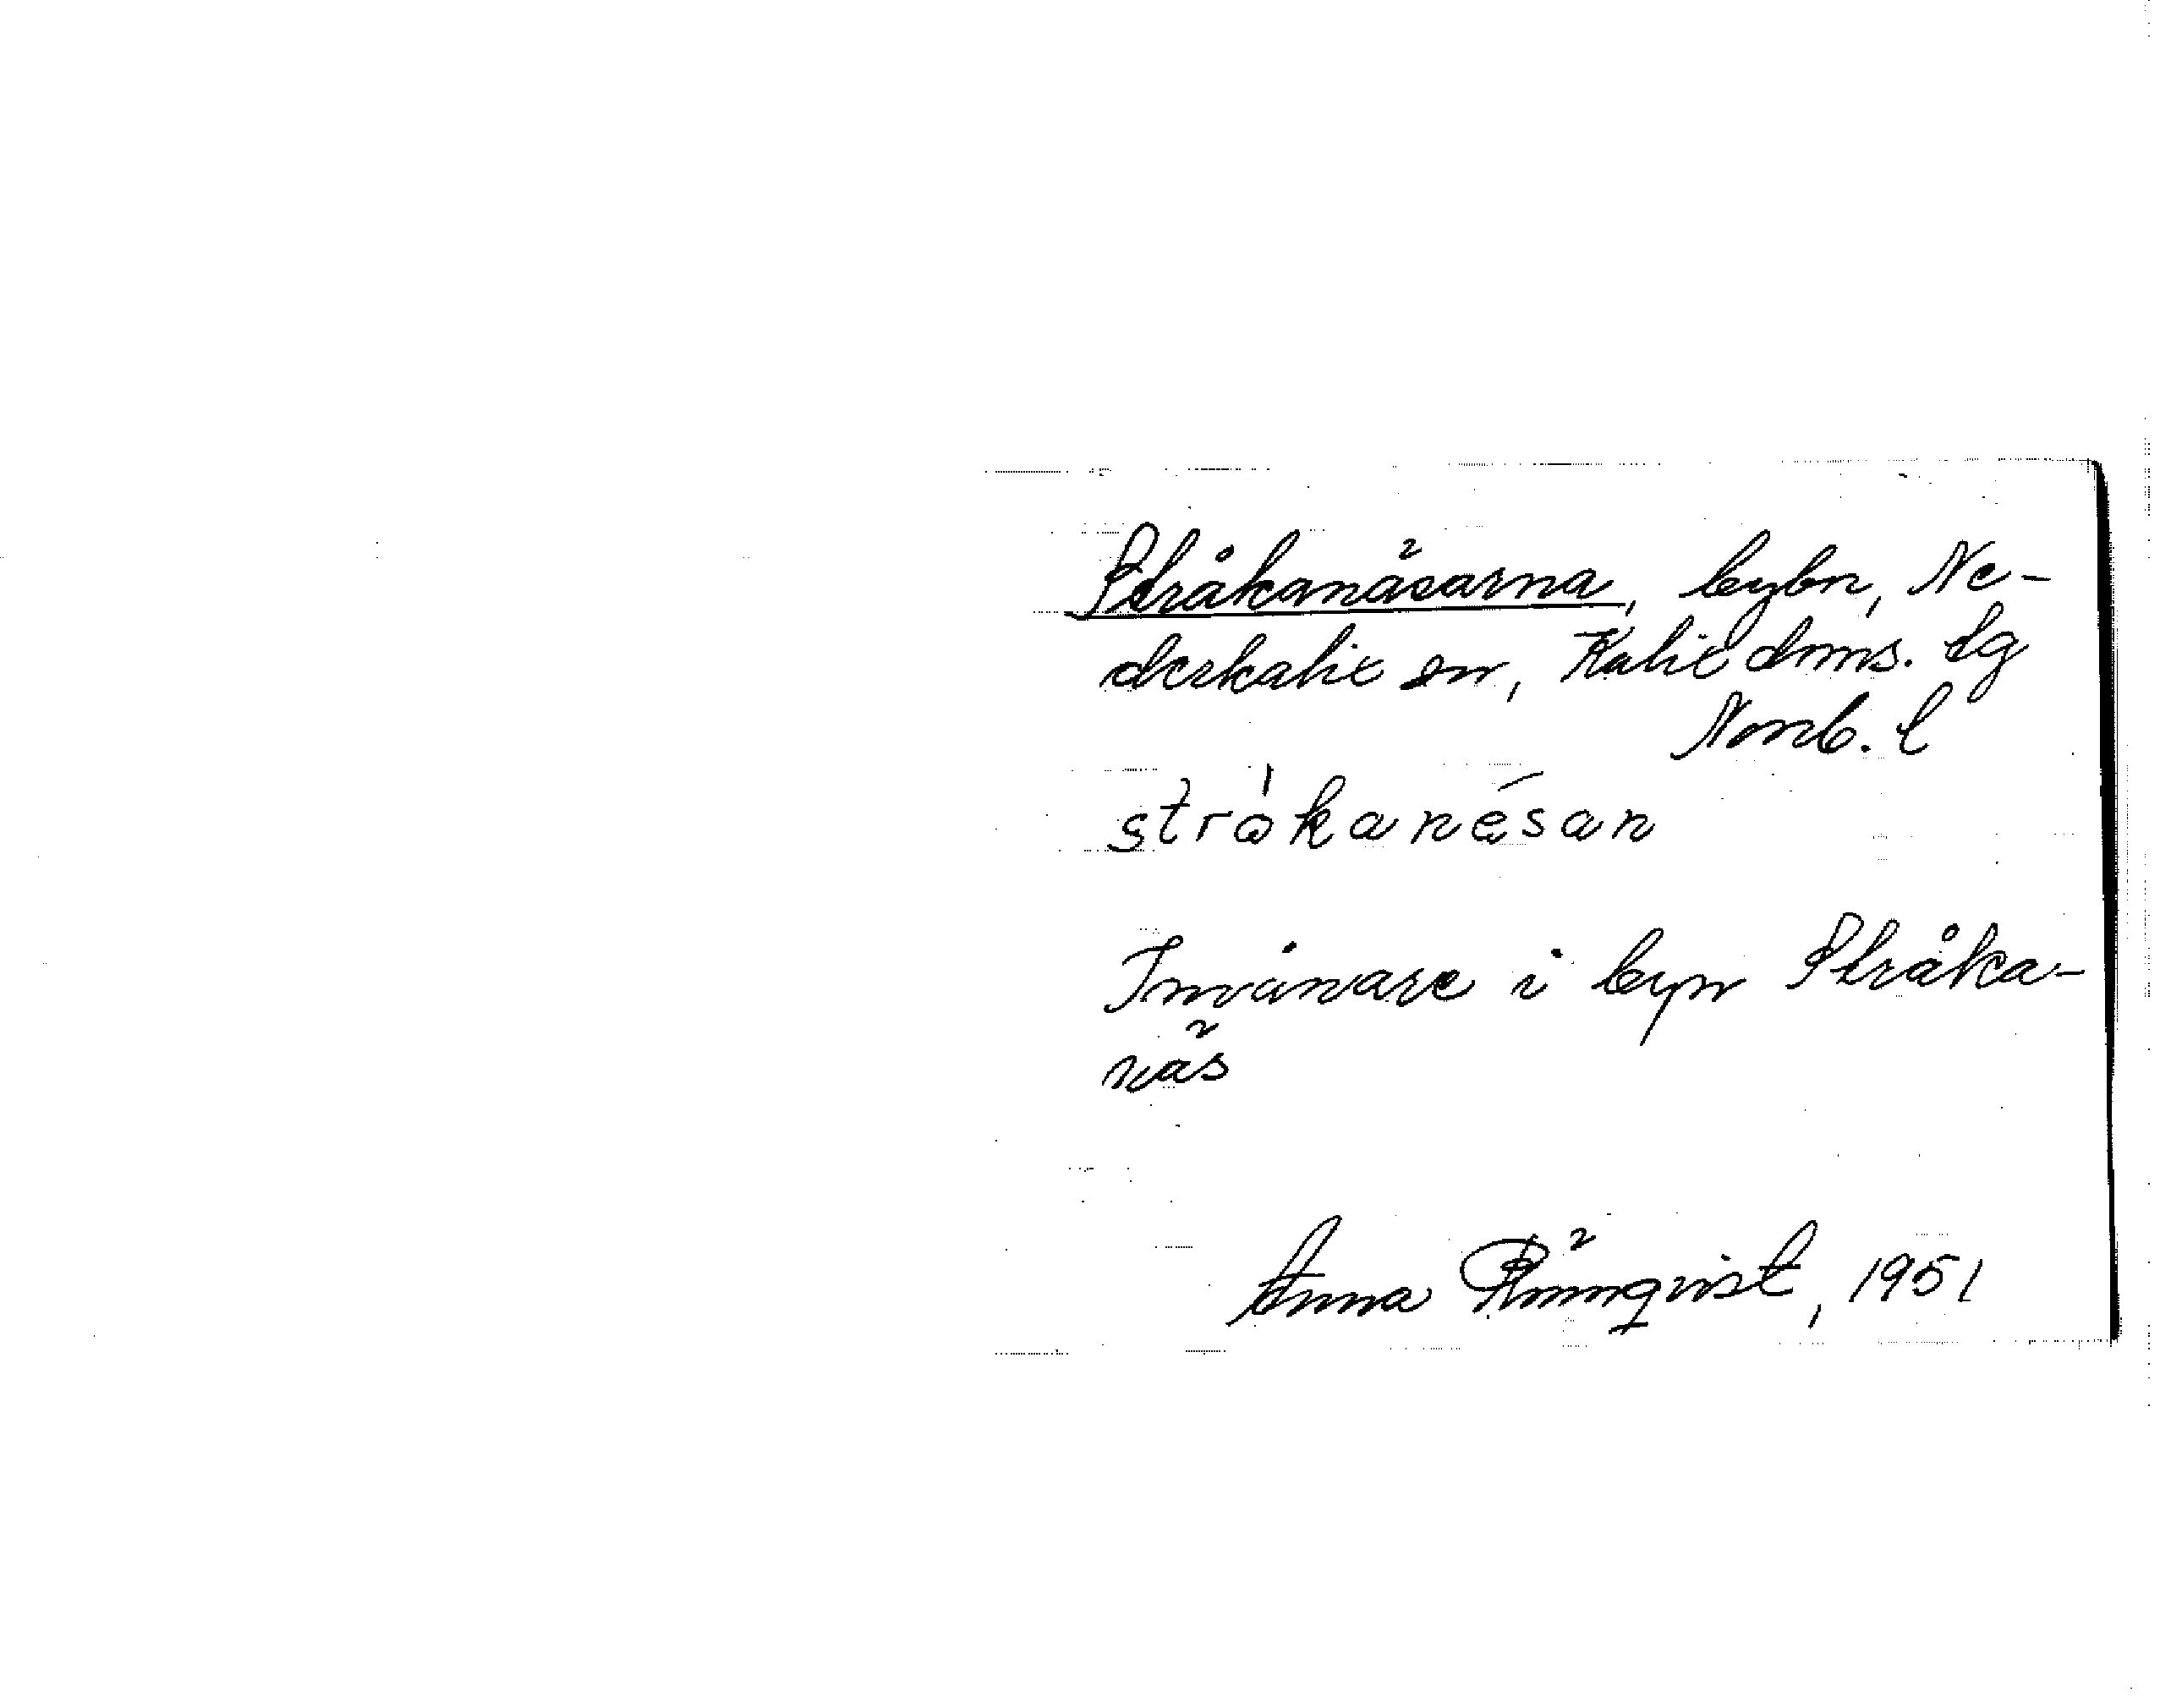 Stråkanäsarna, bybn, Ne-
derkalix sn, Kalix dms. lg
Norrb. l
stråkanésan
Invånare i byn Stråka-
näs
Anna Rönnqvist, 1951